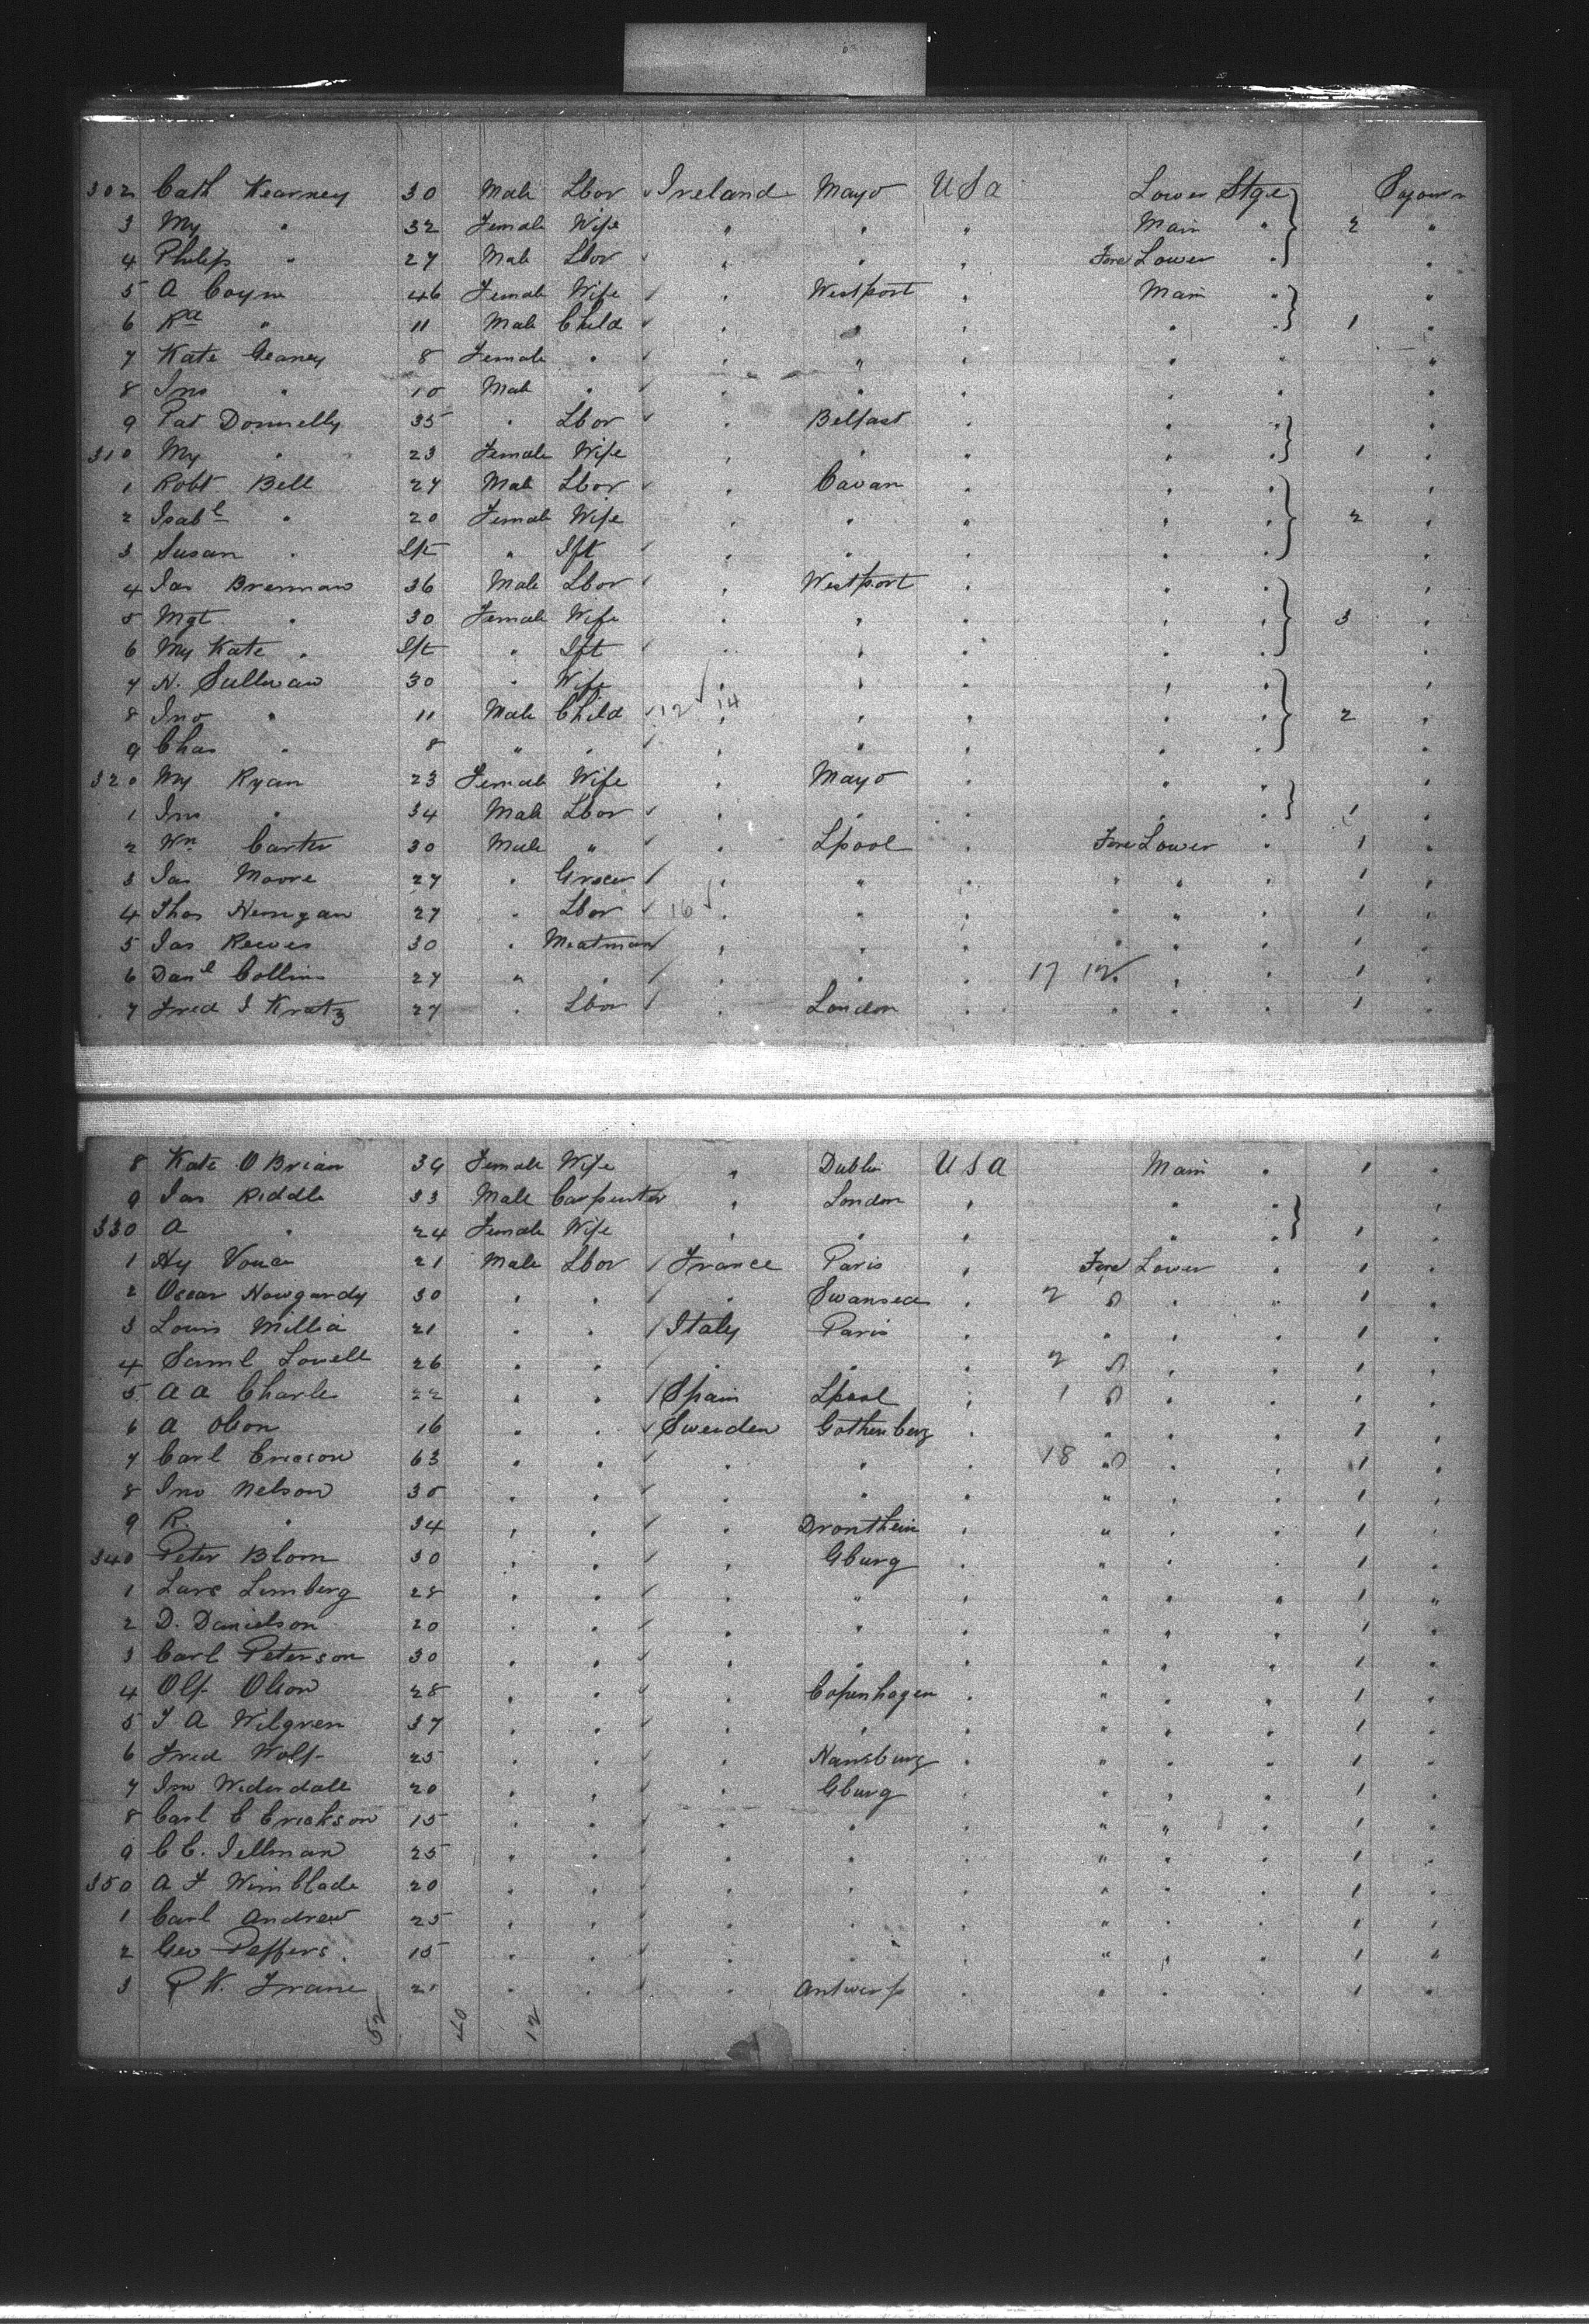 302 Cath Kearney 30 Male Lbor Ireland Mayo USA Lower Stge Sojourn
3 My " 32 Female Wife " " " Main " 2 "
4 Philip " 27 Male Lbor " " " Fore Lower " "
5 A Coyne 46 Female Wife " Westport " Main " "
6 Ra " 11 Male Child " " " " " 1 "
7 Kate Geaney 8 Female " " " " " " "
8 Jno " 10 Male " " " " " " "
9 Pat Donnelly 35 " Lbor " Belfast " " " "
310 My " 23 Female Wife " " " " " 1 "
1 Robt Bell 27 Male Lbor " Cavan " " " "
2 Isabl " 20 Female Wife " " " " " 2 "
3 Susan " Ift " Ift " " " " " "
4 Jas Brennan 36 Male Lbor " Westport " " " "
5 Mgt " 30 Female Wife " " " " " 3 "
6 My Kate " Ift " Ift " " " " " "
7 N. Sullivan 30 " Wife " " " " " "
8 Jno " 11 Male Child 12 14 " " " " " 2 "
9 Chas " 8 " " " " " " " "
320 My Ryan 23 Female Wife " Mayo " " " "
1 Jno " 34 Male Lbor " " " " " 1 "
2 Wm Carter 30 Male " " Lpool " Fore Lower " 1 "
3 Jas Moore 27 " Grocer " " " " " " 1 "
4 Thos Hennigan 27 " Lbor 16 " " " " " 1 "
5 Jas Reeves 30 " Meatman " " " " " " 1 "
6 Danl Collins 27 " " " " " 17 12 " " 1 "
7 Fred J Kratz 27 " Lbor " London " " " " 1 "
8 Kate O Brian 34 Female Wife " Dublin USA Main " 1 "
9 Jas Riddle 33 Male Carpenter " London " " " "
330 A " 24 Female Wife " " " " " 1 "
1 Hy Vouce 21 Male Lbor France Paris " Fore Lower " 1 "
2 Oscar Howgardy 30 " " " Swansea " 2 " " 1 "
3 Louis Millia 21 " " Italy Paris " " " " 1 "
4 Saml Lovell 26 " " " " " 2 " " 1 "
5 A A Charles 22 " " Spain Lpool " 1 " " 1 "
6 A Olson 16 " " Sweden Gothenberg " " " " 1 "
7 Carl Ericson 63 " " " " " 18 " " " 1 "
8 Jno Nelson 30 " " " " " " " " 1 "
9 R. " 34 " " " Drontheim " " " " 1 "
340 Peter Blom 30 " " " Gburg " " " " 1 "
1 Lars Limberg 28 " " " " " " " " 1 "
2 D. Danielson 20 " " " " " " " " 1 "
3 Carl Peterson 30 " " " " " " " " 1 "
4 Olf Olson 28 " " " Copenhagen " " " " 1 "
5 J A Wilgren 37 " " " " " " " " 1 "
6 Fred Wolf 25 " " " Hamburg " " " " 1 "
7 Jno Widerdall 20 " " " Gburg " " " " 1 "
8 Carl E Erickson 15 " " " " " " " " 1 "
9 C C. Jellman 25 " " " " " " " " 1 "
350 A F Wimblade 20 " " " " " " " " 1 "
1 Carl Andrew 25 " " " " " " " " 1 "
2 Geo Peffers 15 " " " " " " " " 1 "
3 P K. Frane " " " Antwerp " " " " 1 "
52 40 12